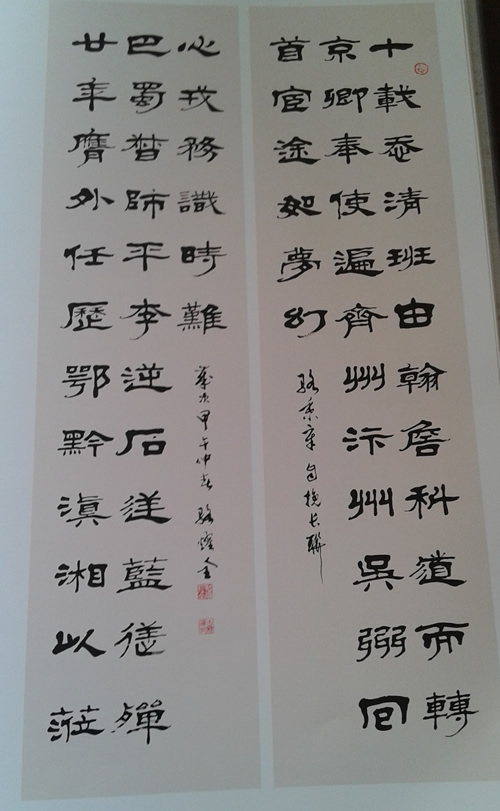 十載忝清班由翰詹科道而轉
京卿奉使遍齊州汴州吳回
首宦途如夢幻
駱秉章自挽長聯
廿年膺外任歷鄂黔滇湘以蒞
巴蜀督師平李逆石逆藍逆殫
心戎務識時難
歲次甲午仲春駱